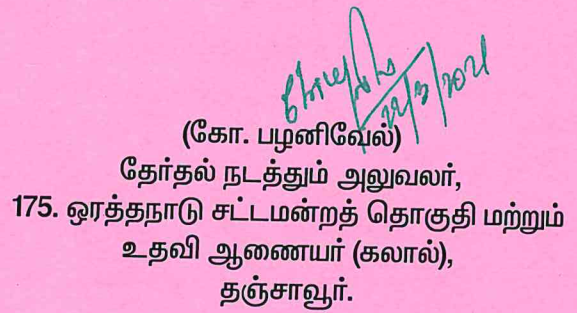 22/3/2021
(கோ. பழனிவேல்)
தேர்தல் நடத்தும் அலுவலர்,
175. ஒரத்தநாடு சட்டமன்றத் தொகுதி மற்றும்
உதவி ஆணையர் (கலால்),
தஞ்சாவூர்.